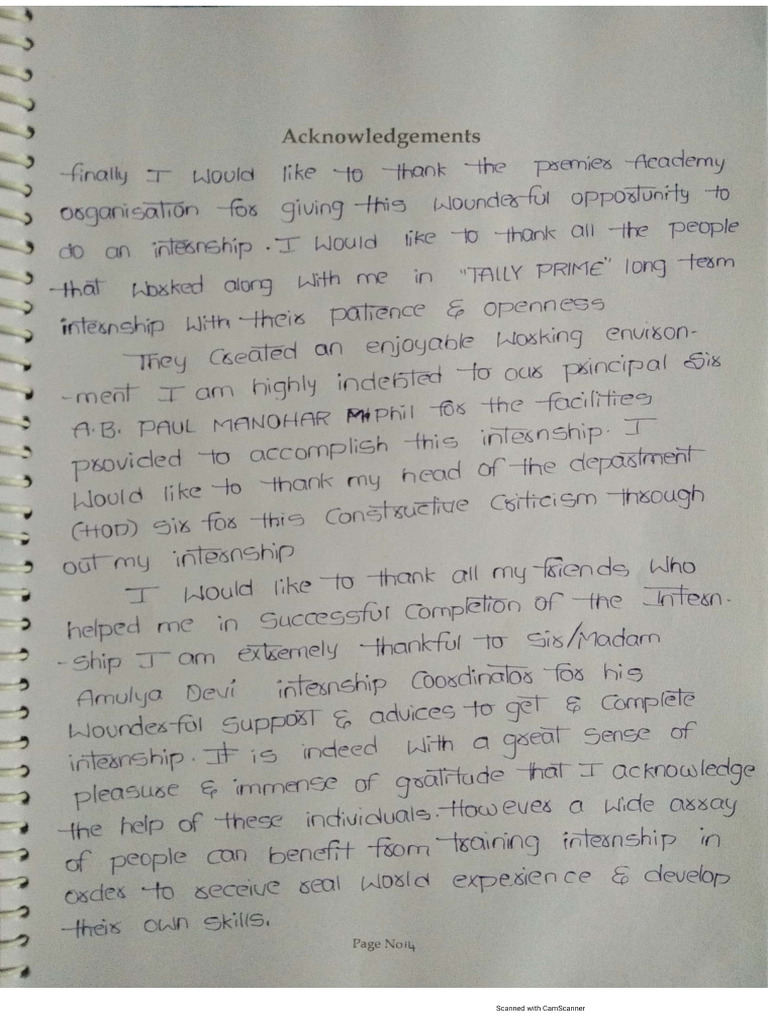 Acknowledgements
finally I would like to thank the premier Academy
organisation for giving this wounderful opportunity to
do an internship. I would like to thank all the people
that worked along with me in "TALLY PRIME" long term
internship with their patience & openness
They created an enjoyable working environ-
-ment I am highly indebted to our principal Sir
A.B. PAUL MANOHAR M.Phil for the facilities
provided to accomplish this internship. I
would like to thank my head of the department
(HOD) sir for this constructive criticism through
out my internship
I would like to thank all my friends who
helped me in successful completion of the Intern-
-ship I am extremely thankful to Sir/Madam
Amulya Devi internship Coordinator for his
wounderful support & advices to get & complete
internship. It is indeed with a great sense of
pleasure & immense of gratitude that I acknowledge
the help of these individuals. However a wide array
of people can benefit from training internship in
order to receive real world experience & develop
their own skills.
Page No:14
Scanned with CamScanner